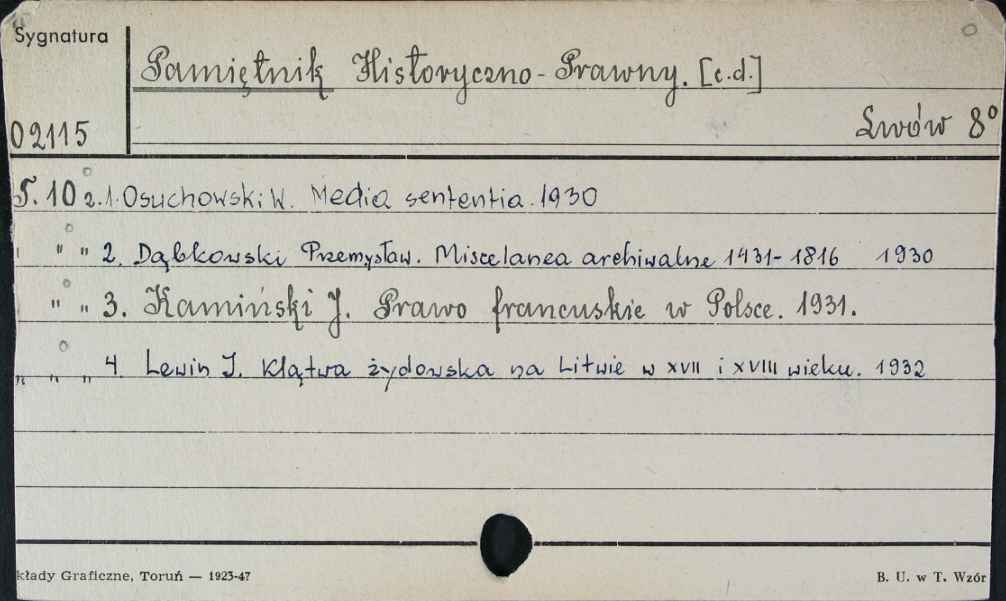 Sygnatura
Pamiętnik Historyczno-Prawny. [c.d.]
02115
Lwów 8°
T. 10 z. 1. Osuchowski W. Media sententia. 1930
" " 2. Dąbkowski Przemysław. Miscelanea archiwalne 1431-1816 1930
" " 3. Kamiński J. Prawo francuskie w Polsce. 1931.
" " " 4. Lewin I. Klątwa żydowska na Litwie w XVII i XVIII wieku. 1932
kłady Graficzne, Toruń — 1923-47
B. U. w T. Wzór